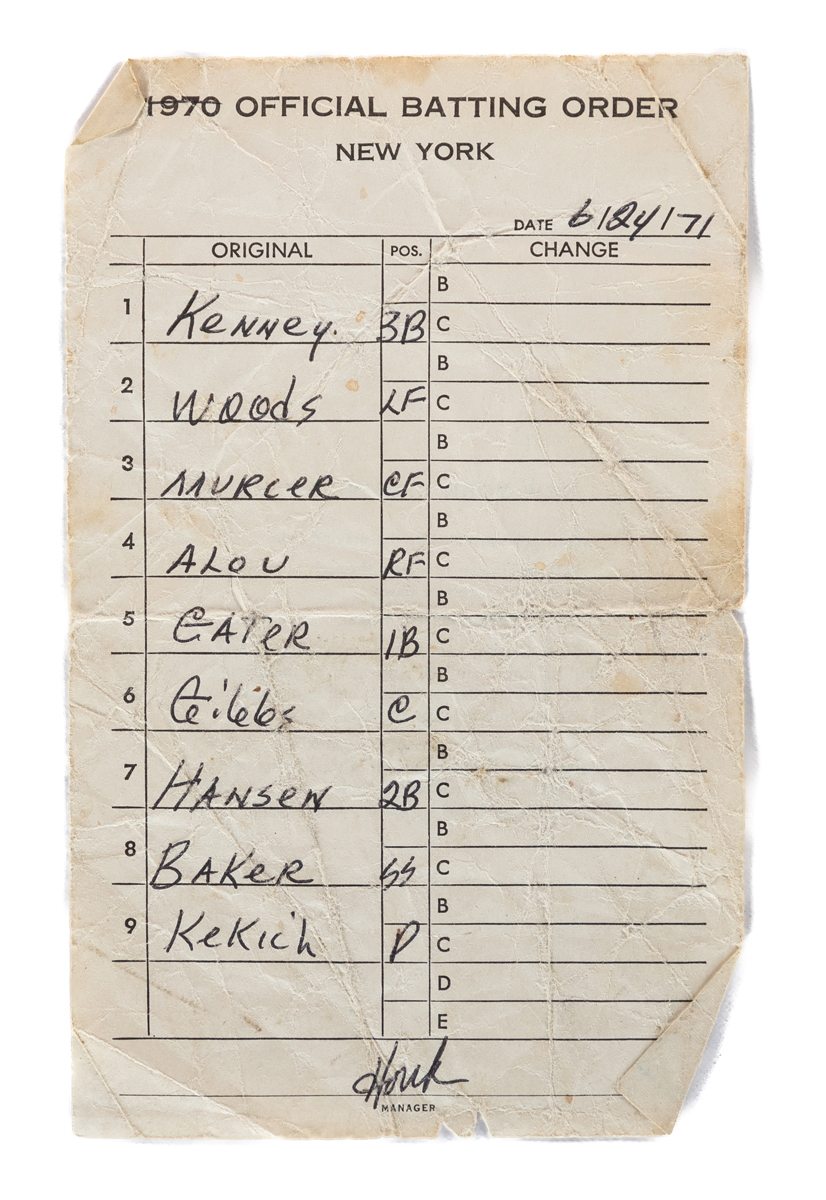 1970 OFFICIAL BATTING ORDER
NEW YORK
DATE 6/24/71
ORIGINAL POS. CHANGE
B
1 Kenney. 3B C
B
2 Woods LF C
B
3 MURCER CF C
B
4 ALOU RF C
B
5 CATER 1B C
B
6 Gibbs C C
B
7 HANSEN 2B C
B
8 BAKER SS C
B
9 KeKich P C
D
E
Houk
MANAGER